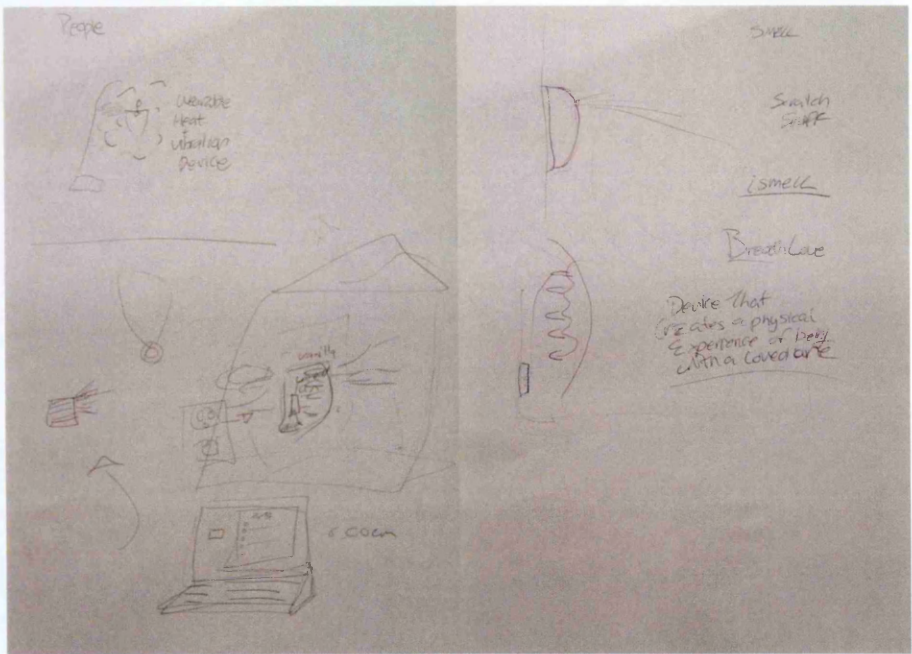 People
wearable
Heat
+
vibration
Device
vanilla
SMELL
Scratch
ismell
Breath Love
Device That
Creates a physical
Experience of being
with a Loved one